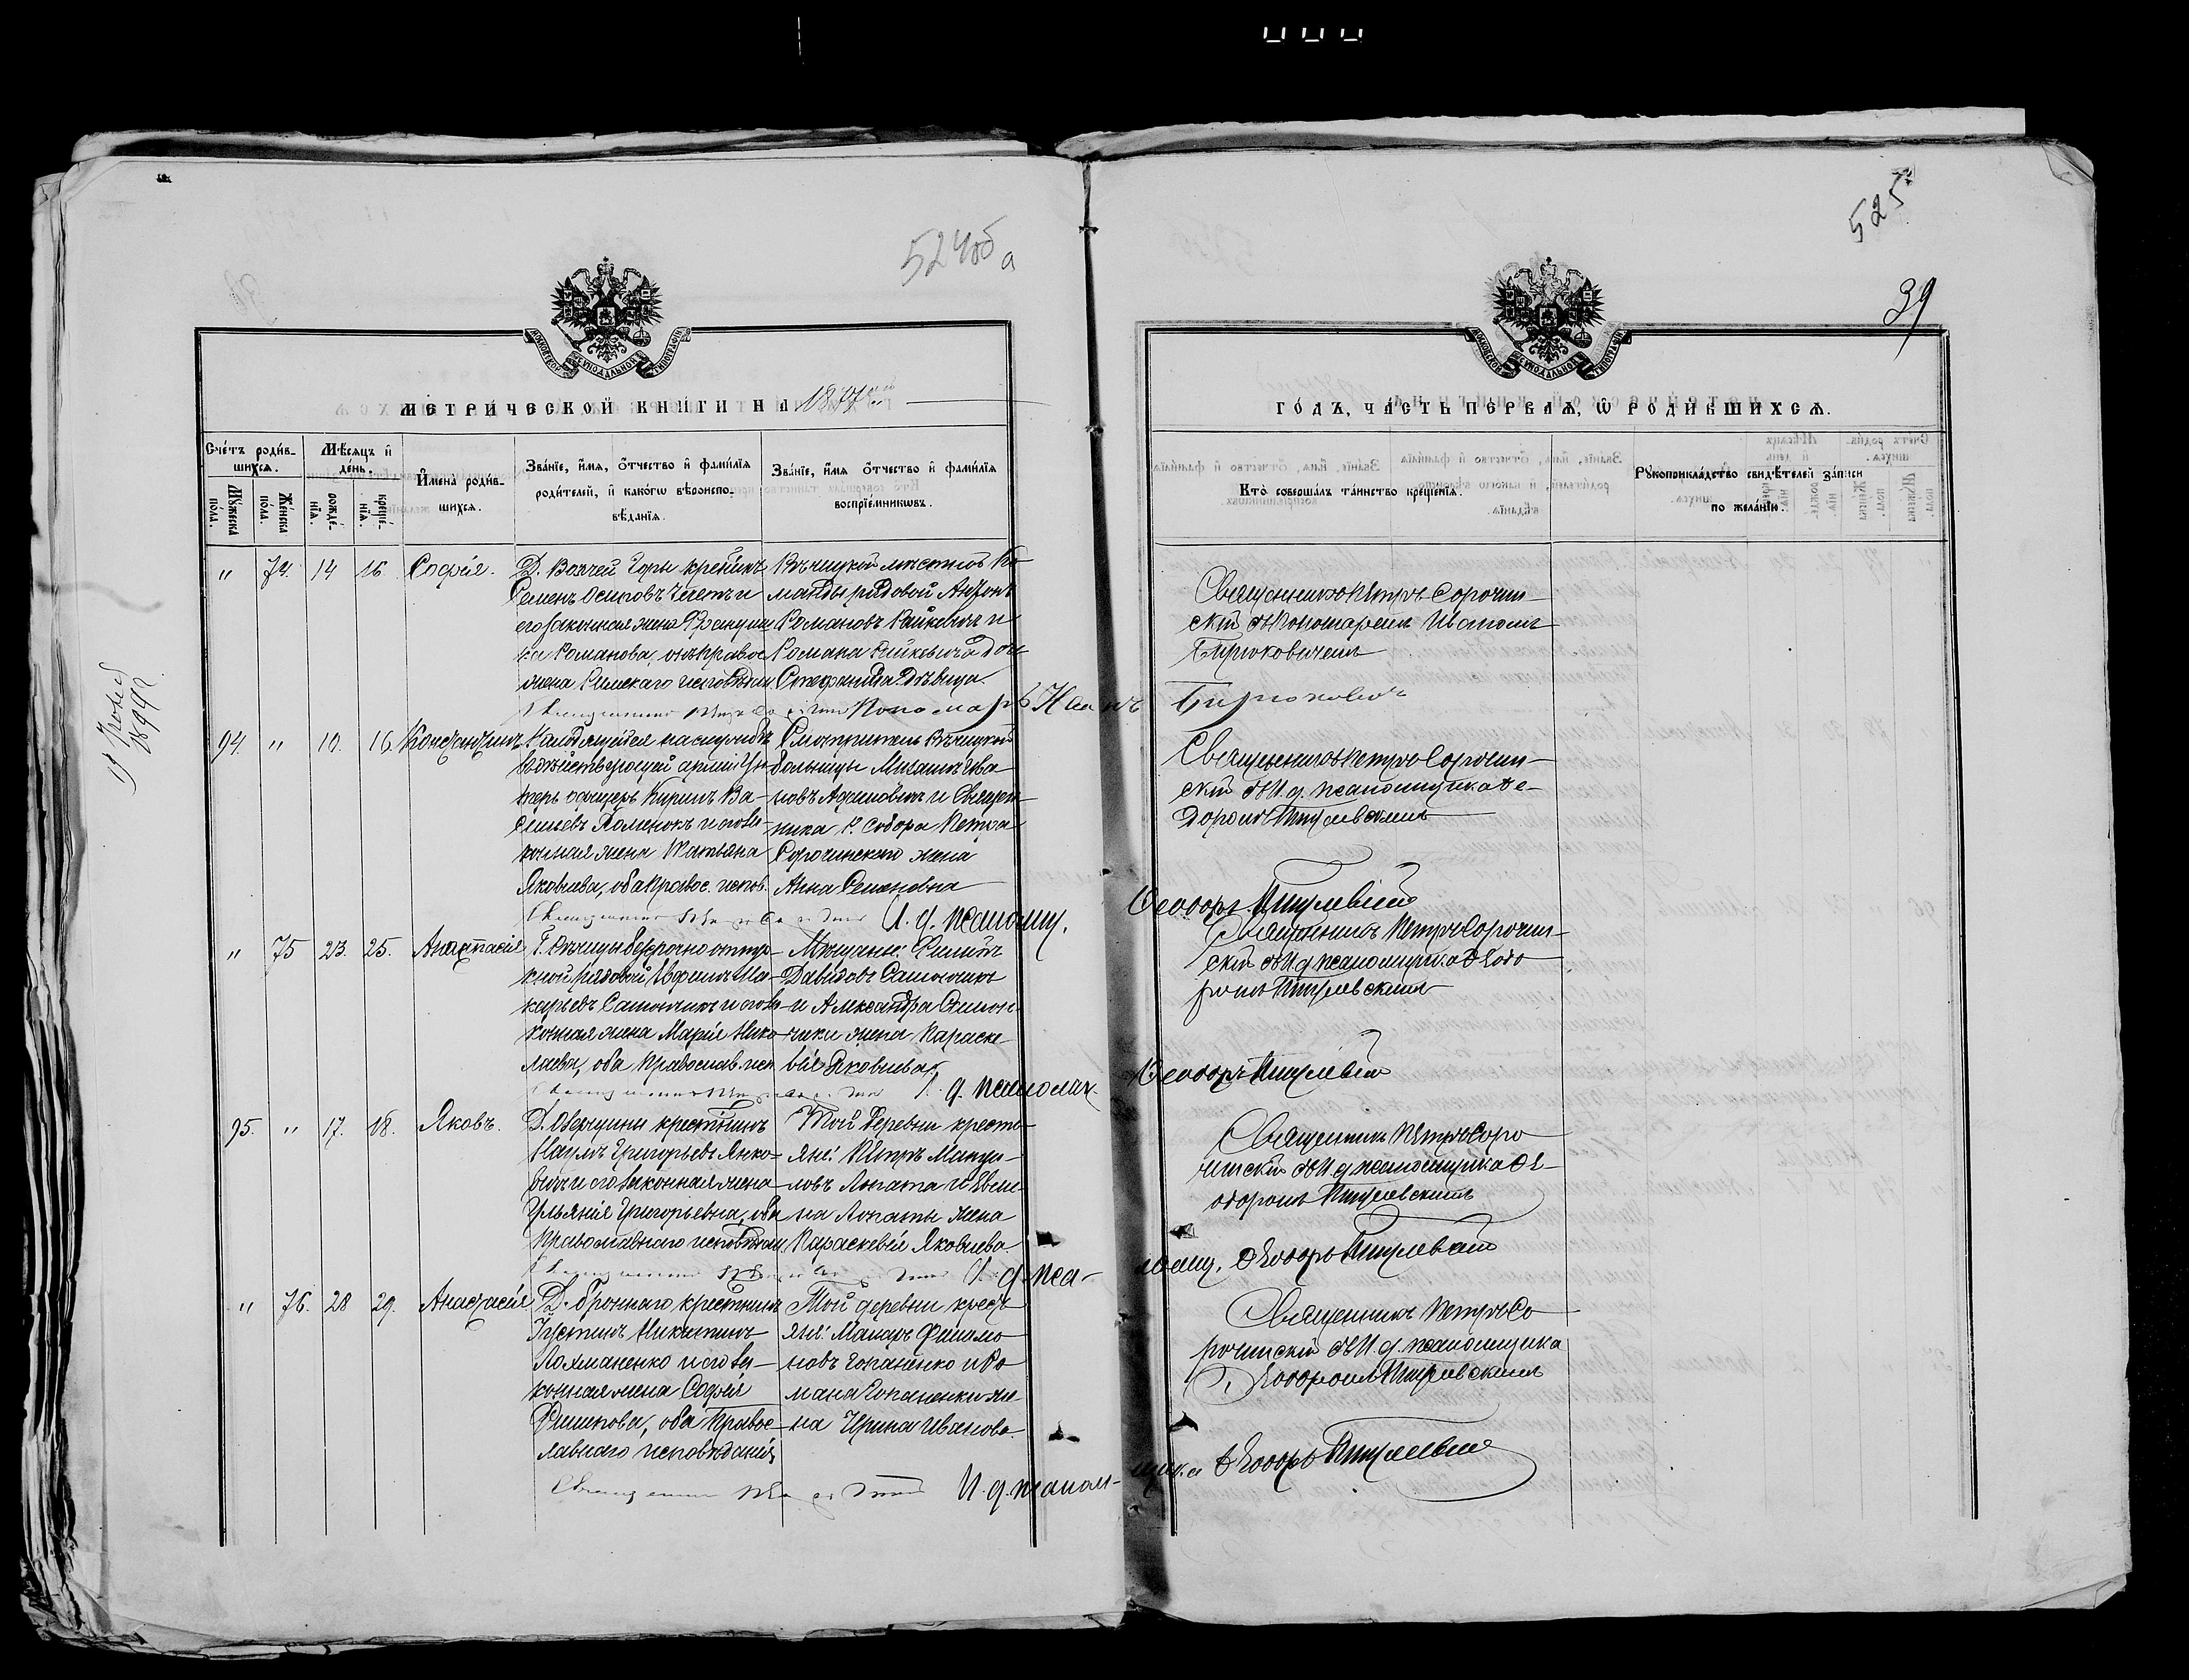 524 об а
525
39
МОСКОВСКОЙ СѴНОДАЛЬНОЙ ТИПОГРАФІИ
МЕТРИЧЕСКОЙ КНИГИ НА 1877й
ГОДЪ, ЧАСТЬ ПЕРВАЯ, Ѡ РОДИВШИХСЯ.
Счетъ родив-
шихся.
Мужеска пола.
Женска пола.
Мѣсяцъ и
день.
рожде-
нія.
креще-
нія.
Имена родив-
шихся.
Званіе, имя, отчество и фамилія
родителей, и какогѡ вѣроиспо-
вѣданія.
Званіе, имя отчество и фамилія
воспріемникѡвъ.
Кто совершалъ таинство крещенія.
Рукоприкладство свидѣтелей записи
по желанію.
1899 г.
" 74. 14 16 Софія.
Д. Волчей Горы крестьянъ
Семенъ Осиповъ и
его законная жена Францис
ка Романова, онъ правос
жена Римскаго исповѣдан.
Рѣчицкой мѣстной Ко
манды рядовой Антонъ
Романовъ Райкевичъ и
Романа Райкевича дочь
Стефанида дѣвица.
Священникъ Петръ Сорочин-
скій съ Пономаремъ Иваномъ
Бирюковичемъ
Священникъ Петръ Сорочинскій Пономарь Иванъ Бирюковичъ
94. " 10. 16. Константинъ
Находящійся на службѣ
въ дѣйствующей арміи Ун-
теръ офицеръ Кирилъ Ва-
сильевъ и его за-
конная жена Татьяна
Яковлева, оба правос. испов.
Смотритель Рѣчицкой
больницы Михаилъ Ива-
новъ и Священ-
ника Р. Собора Петра
Сорочинскаго жена
Анна Семеновна
Священникъ Петръ Сорочин-
скій съ И. д. псаломщика Ѳе-
доромъ
Священникъ Петръ Сорочинскій И. д. псаломщ. Ѳеодоръ
" 75 23. 25. Анастасія
Г. Рѣчицы безсрочно отпус-
кной рядовой Ма-
карьевъ Самончикъ и его за-
конная жена Марія Нико-
лаева, оба Православ. исп
Мѣщане: Филипъ
Давидовъ Самончикъ
и Александра Самон-
чика жена Параске-
вія Яковлева
Священникъ Петръ Сорочин-
скій съ И. д. псаломщика Ѳедо
ромъ
Священникъ Петръ Сорочинскій И. д. псаломщ. Ѳеодоръ
95. " 17. 18. Яковъ.
Д. Озерщины крестьянинъ
Наумъ Григорьевъ Янко-
вичъ и его законная жена
Ульянія Григорьевна, оба
Православнаго исповѣдан.
Той деревни кресть-
яне: Петръ
Лопата и
на Лопаты жена
Параскевія Яковлева
Священникъ Петръ Соро
чинскій съ И. д. псаломщика Ѳе-
одоромъ
Священникъ Петръ Сорочинскій И. д. псаломщ. Ѳеодоръ
" 76. 28 29. Анастасія
Д. Броннаго крестьянинъ
Никитинъ
и его за-
конная жена Софія
Филипова, оба Правос-
лавнаго исповѣданія
Той деревни кресть
яне: Макаръ Филимо
новъ Гопаненко и Ро
мана Гопаненки же
на Ирина Иванова.
Священникъ Петръ Со
рочинскій съ И. д. псаломщика
Ѳеодоромъ
Священникъ Петръ Сорочинскій И. д. псаломщика Ѳеодоръ